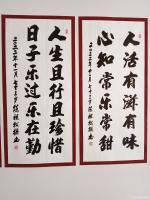 人活有滋有味
心知常乐常甜
二〇二二年十一月七十三岁
人生且行且珍惜
日子乐过乐在勤
二〇二二年十一月七十三岁